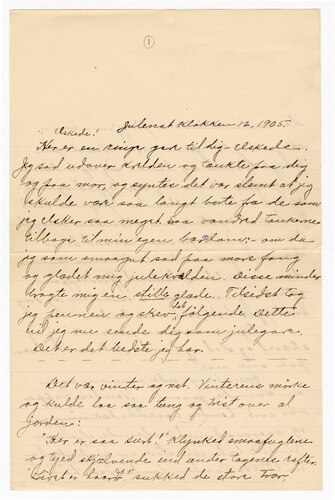 1
Julenat klokken 12, 1905.
Elskede!
Her er en ringe gave til dig - Elskede.
Jeg sad udover kvelden og tænkte paa dig
og paa mor, og syntes det var slemt at jeg
skulde vær saa langt borte fra de som
jeg elsker saa meget. Saa vandred tankerne
tilbage til min egen barndom: - om da
jeg som smaagut sad paa mors fang
og glædet mig julekvelden. Disse minder
bragte mig en stille glæde. Tilsidst tog
jeg pennen og skrev det følgende. Dette
vil jeg nu sende dig som julegave.
Det er det bedste jeg har.
Det var vinter og nat. Vinterens mørke
og kulde laa saa tung og trist over al
jorden:
"Her er saa surt!" klynked smaafuglene
og tyed skjælvende ind under tagenes rafter.
"Livet er haardt!" sukked de store trær,